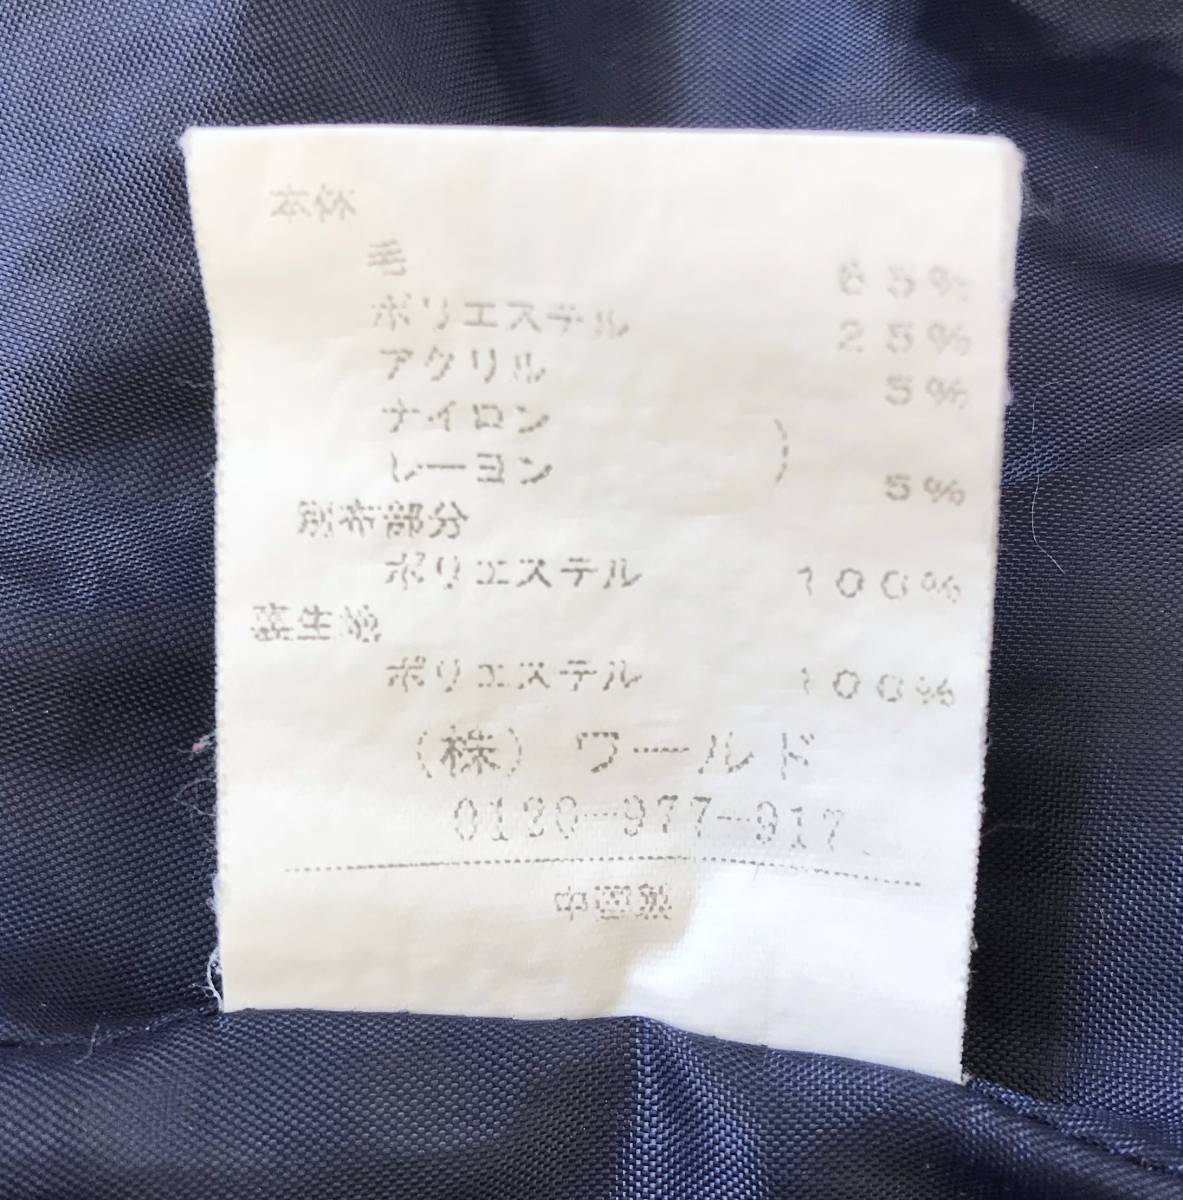 本体
毛 65%
ポリエステル 25%
アクリル 5%
ナイロン )
レーヨン 5%
別布部分
ポリエステル 100%
裏生地
ポリエステル 100%
(株) ワールド
0120-977-917
中国製